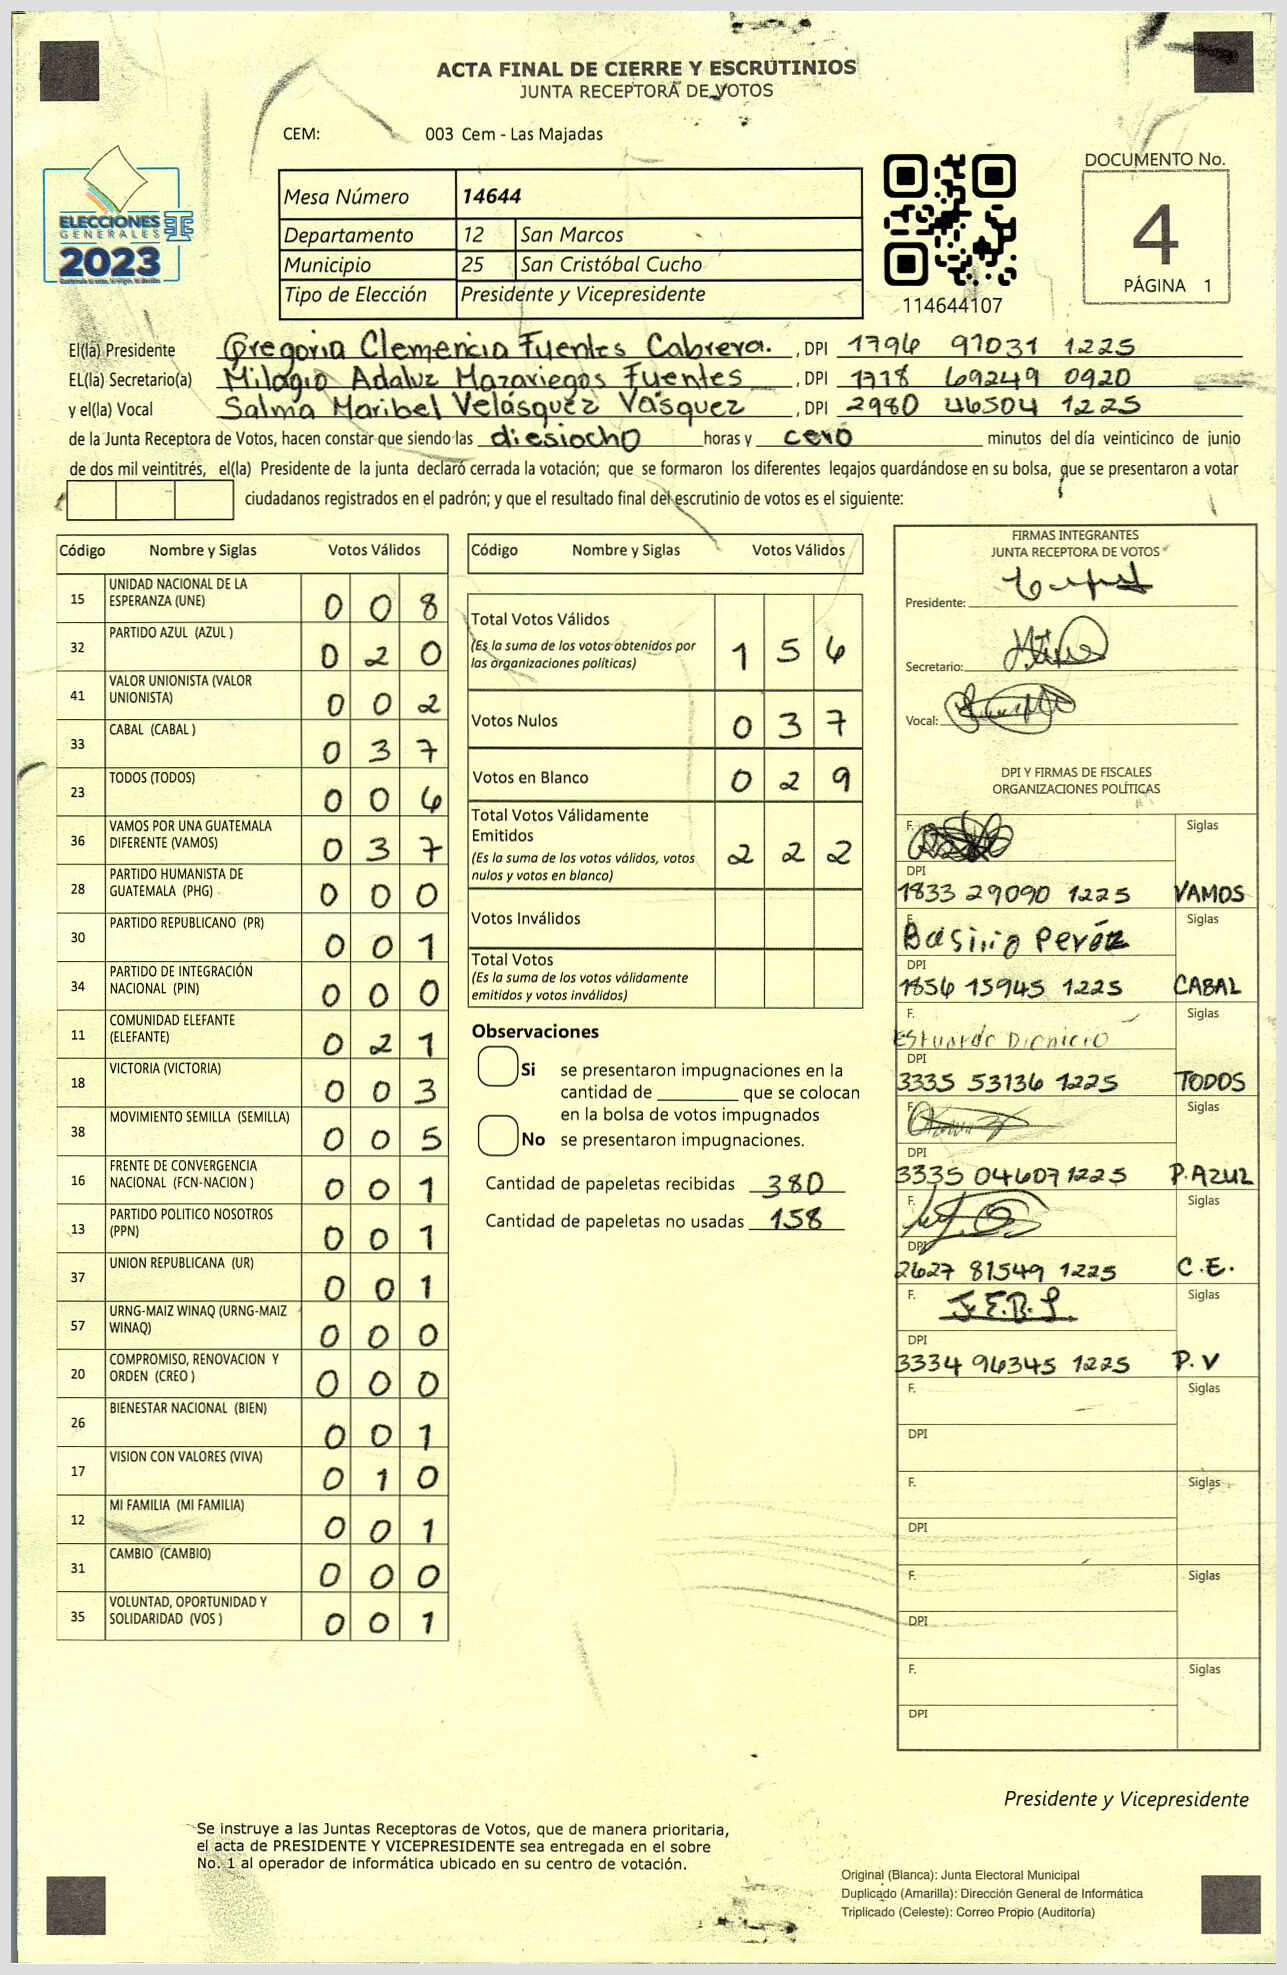 ACTA FINAL DE CIERRE Y ESCRUTINIOS
JUNTA RECEPTORA DE VOTOS
CEM: 003 Cem - Las Majadas
ELECCIONES
GENERALES
2023
Mesa Número 14644
Departamento 12 San Marcos
Municipio 25 San Cristóbal Cucho
Tipo de Elección Presidente y Vicepresidente
114644107
DOCUMENTO No.
4
PÁGINA 1
El(la) Presidente Gregoria Clemencia Fuentes Cabrera. , DPI 1796 97031 1225
EL(la) Secretario(a) Milagro Adaluz Mazariegos Fuentes , DPI 1718 69249 0920
y el(la) Vocal Salma Maribel Velásquez Vásquez , DPI 2980 46504 1225
de la Junta Receptora de Votos, hacen constar que siendo las diesiocho horas y cero minutos del día veinticinco de junio
de dos mil veintitrés, el(la) Presidente de la junta declaró cerrada la votación; que se formaron los diferentes legajos quardándose en su bolsa, que se presentaron a votar
ciudadanos registrados en el padrón; y que el resultado final del escrutinio de votos es el siguiente:
Código Nombre y Siglas Votos Válidos
15 UNIDAD NACIONAL DE LA ESPERANZA (UNE) 0 0 8
32 PARTIDO AZUL (AZUL ) 0 2 0
41 VALOR UNIONISTA (VALOR UNIONISTA) 0 0 2
33 CABAL (CABAL ) 0 3 7
23 TODOS (TODOS) 0 0 4
36 VAMOS POR UNA GUATEMALA DIFERENTE (VAMOS) 0 3 7
28 PARTIDO HUMANISTA DE GUATEMALA (PHG) 0 0 0
30 PARTIDO REPUBLICANO (PR) 0 0 1
34 PARTIDO DE INTEGRACIÓN NACIONAL (PIN) 0 0 0
11 COMUNIDAD ELEFANTE (ELEFANTE) 0 2 1
18 VICTORIA (VICTORIA) 0 0 3
38 MOVIMIENTO SEMILLA (SEMILLA) 0 0 5
16 FRENTE DE CONVERGENCIA NACIONAL (FCN-NACION ) 0 0 1
13 PARTIDO POLITICO NOSOTROS (PPN) 0 0 1
37 UNION REPUBLICANA (UR) 0 0 1
57 URNG-MAIZ WINAQ (URNG-MAIZ WINAQ) 0 0 0
20 COMPROMISO, RENOVACION Y ORDEN (CREO ) 0 0 0
26 BIENESTAR NACIONAL (BIEN) 0 0 1
17 VISION CON VALORES (VIVA) 0 1 0
12 MI FAMILIA (MI FAMILIA) 0 0 1
31 CAMBIO (CAMBIO) 0 0 0
35 VOLUNTAD, OPORTUNIDAD Y SOLIDARIDAD (VOS ) 0 0 1
Código Nombre y Siglas Votos Válidos
Total Votos Válidos 1 5 6
(Es la suma de los votos obtenidos por
las organizaciones políticas)
Votos Nulos 0 3 7
Votos en Blanco 0 2 9
Total Votos Válidamente
Emitidos 2 2 2
(Es la suma de los votos válidos, votos
nulos y votos en blanco)
Votos Inválidos
Total Votos
(Es la suma de los votos válidamente
emitidos y votos inválidos)
Observaciones
Si se presentaron impugnaciones en la
cantidad de ________ que se colocan
en la bolsa de votos impugnados
No se presentaron impugnaciones.
Cantidad de papeletas recibidas 380
Cantidad de papeletas no usadas 158
FIRMAS INTEGRANTES
JUNTA RECEPTORA DE VOTOS
Presidente:
Secretario:
Vocal:
DPI Y FIRMAS DE FISCALES
ORGANIZACIONES POLÍTICAS
F. Siglas
DPI
1833 29090 1225 VAMOS
F. Basilio Pérez Siglas
DPI
1856 15945 1225 CABAL
F. Estuardo Dionicio Siglas
DPI
3335 53136 1225 TODOS
F. Siglas
DPI
3335 04607 1225 P.AZUL
F. Siglas
DPI
2627 81549 1225 C.E.
F. J.E.B.L. Siglas
DPI
3334 96345 1225 P.V
F. Siglas
DPI
F. Siglas
DPI
F. Siglas
DPI
F. Siglas
DPI
Presidente y Vicepresidente
Se instruye a las Juntas Receptoras de Votos, que de manera prioritaria,
el acta de PRESIDENTE Y VICEPRESIDENTE sea entregada en el sobre
No. 1 al operador de informática ubicado en su centro de votación.
Original (Blanca): Junta Electoral Municipal
Duplicado (Amarilla): Dirección General de Informática
Triplicado (Celeste): Correo Propio (Auditoría)